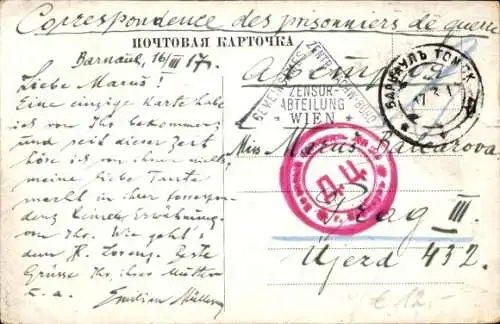 Correspondence des prisonniers de guerre
ПОЧТОВАЯ КАРТОЧКА
Barnaul, 16/III 17.
Liebe Maruš!
Eine einzige Karte habe
ich von Ihr bekommen
und seit dieser Zeit
höre ich von Ihnen nichts
meine liebe Tante
merkt in ihrer Korrespon-
denz keine Erwähnung
von Ihr. Wie geht's
dem H. Lorenz. Beste
Grüsse Ihr, ihrer Mutter
u. a. Emilian
ZENSUR-
ABTEILUNG
WIEN
БАРНАУЛЪ ТОМСК
17
Д.Ц.
Miss Maruš Balcarova
Prag III.
Újezd 432.
€ 12.-